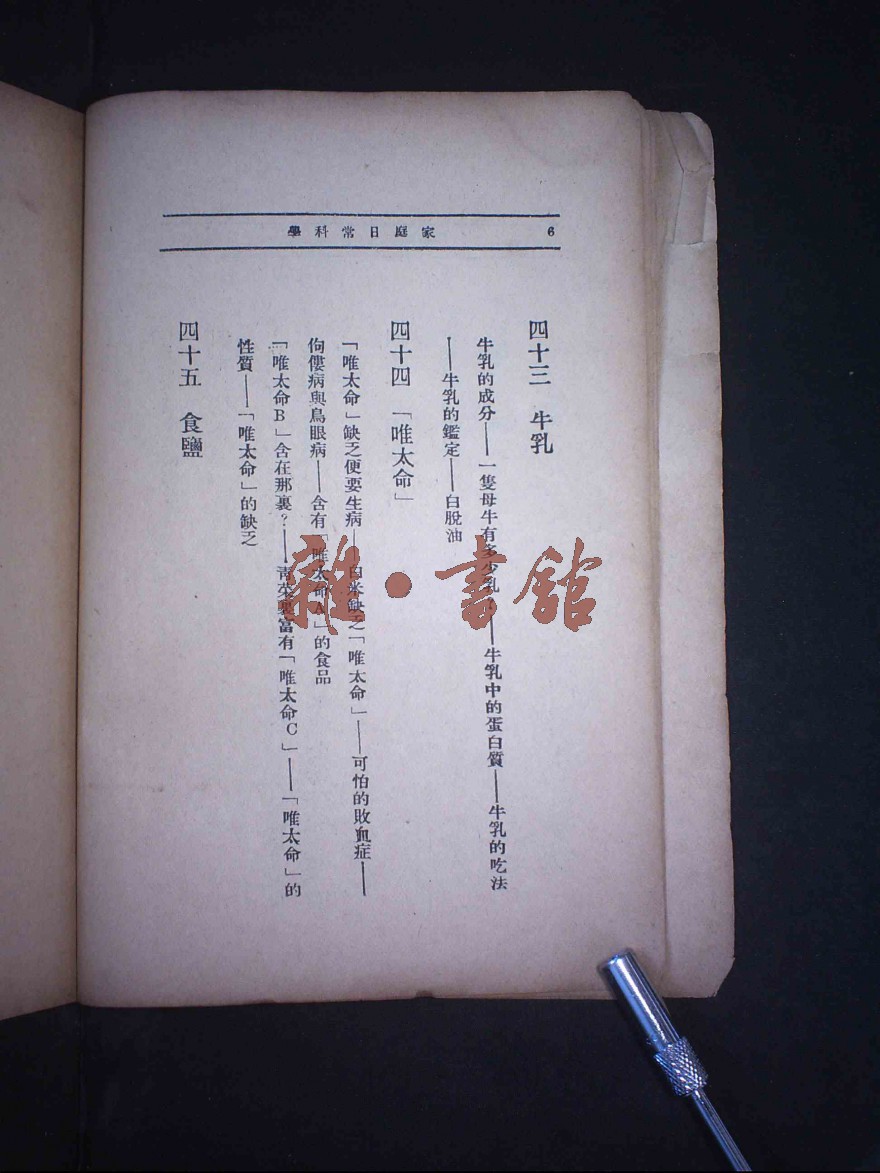 6 家庭日常科學
四十三 牛乳
牛乳的成分——一隻母牛有多少乳?——牛乳中的蛋白質——牛乳的吃法
——牛乳的鑑定——白脫油
四十四 「唯太命」
「唯太命」缺乏便要生病——白米缺乏「唯太命」——可怕的敗血症——
佝僂病與鳥眼病——含有「唯太命A」的食品
「唯太命B」含在那裏?——青菜裏富有「唯太命C」——「唯太命」的
性質——「唯太命」的缺乏
四十五 食鹽
雜·書館